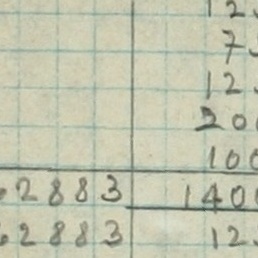 12
7
12
200
100
62883 1400
62883 12